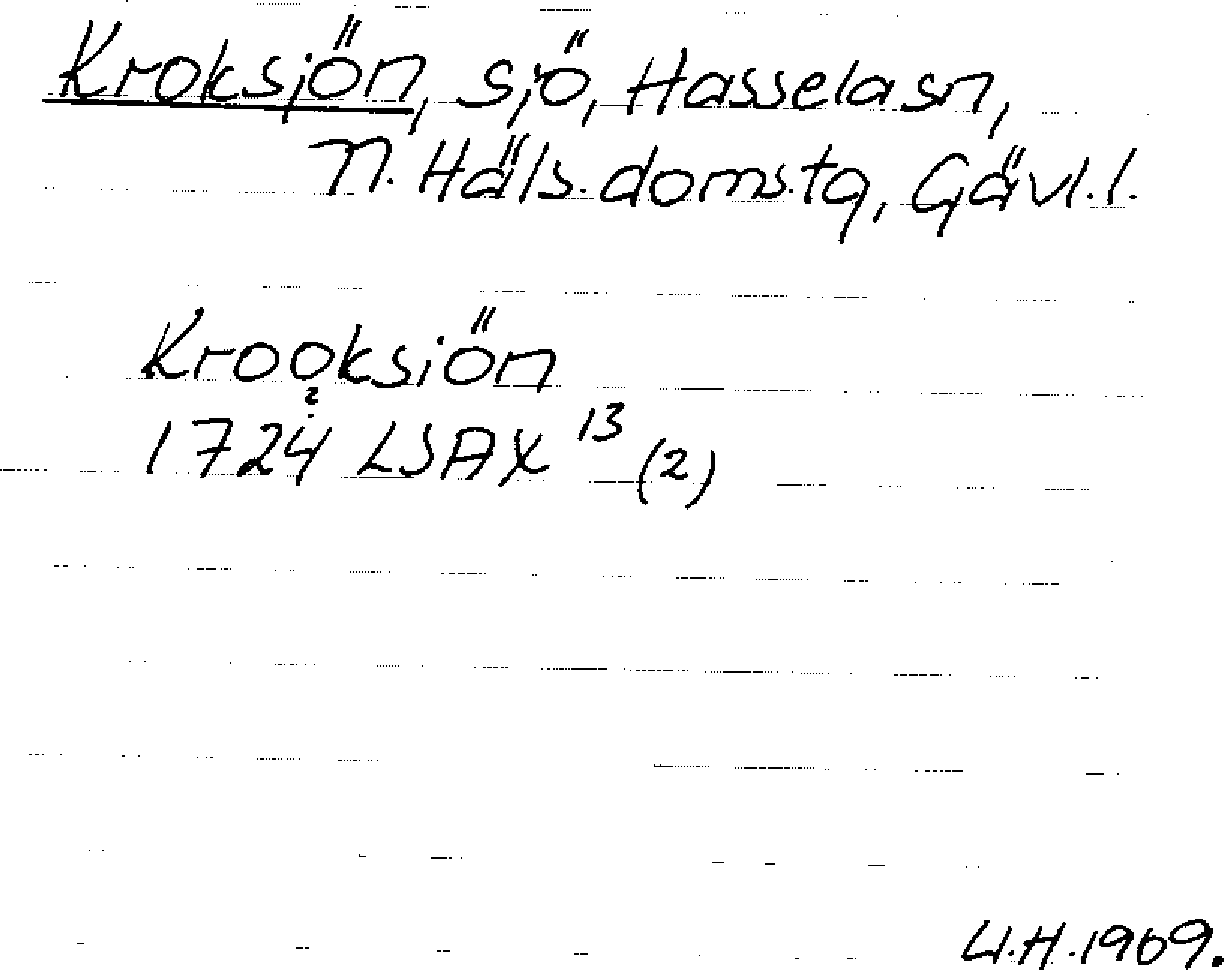 Kroksjön, sjö, Hasselasn,
N. Häls. doms.tg, Gävl.l.
Krooksiön
?
1724 LSA X 13 (2)
U.H. 1969.